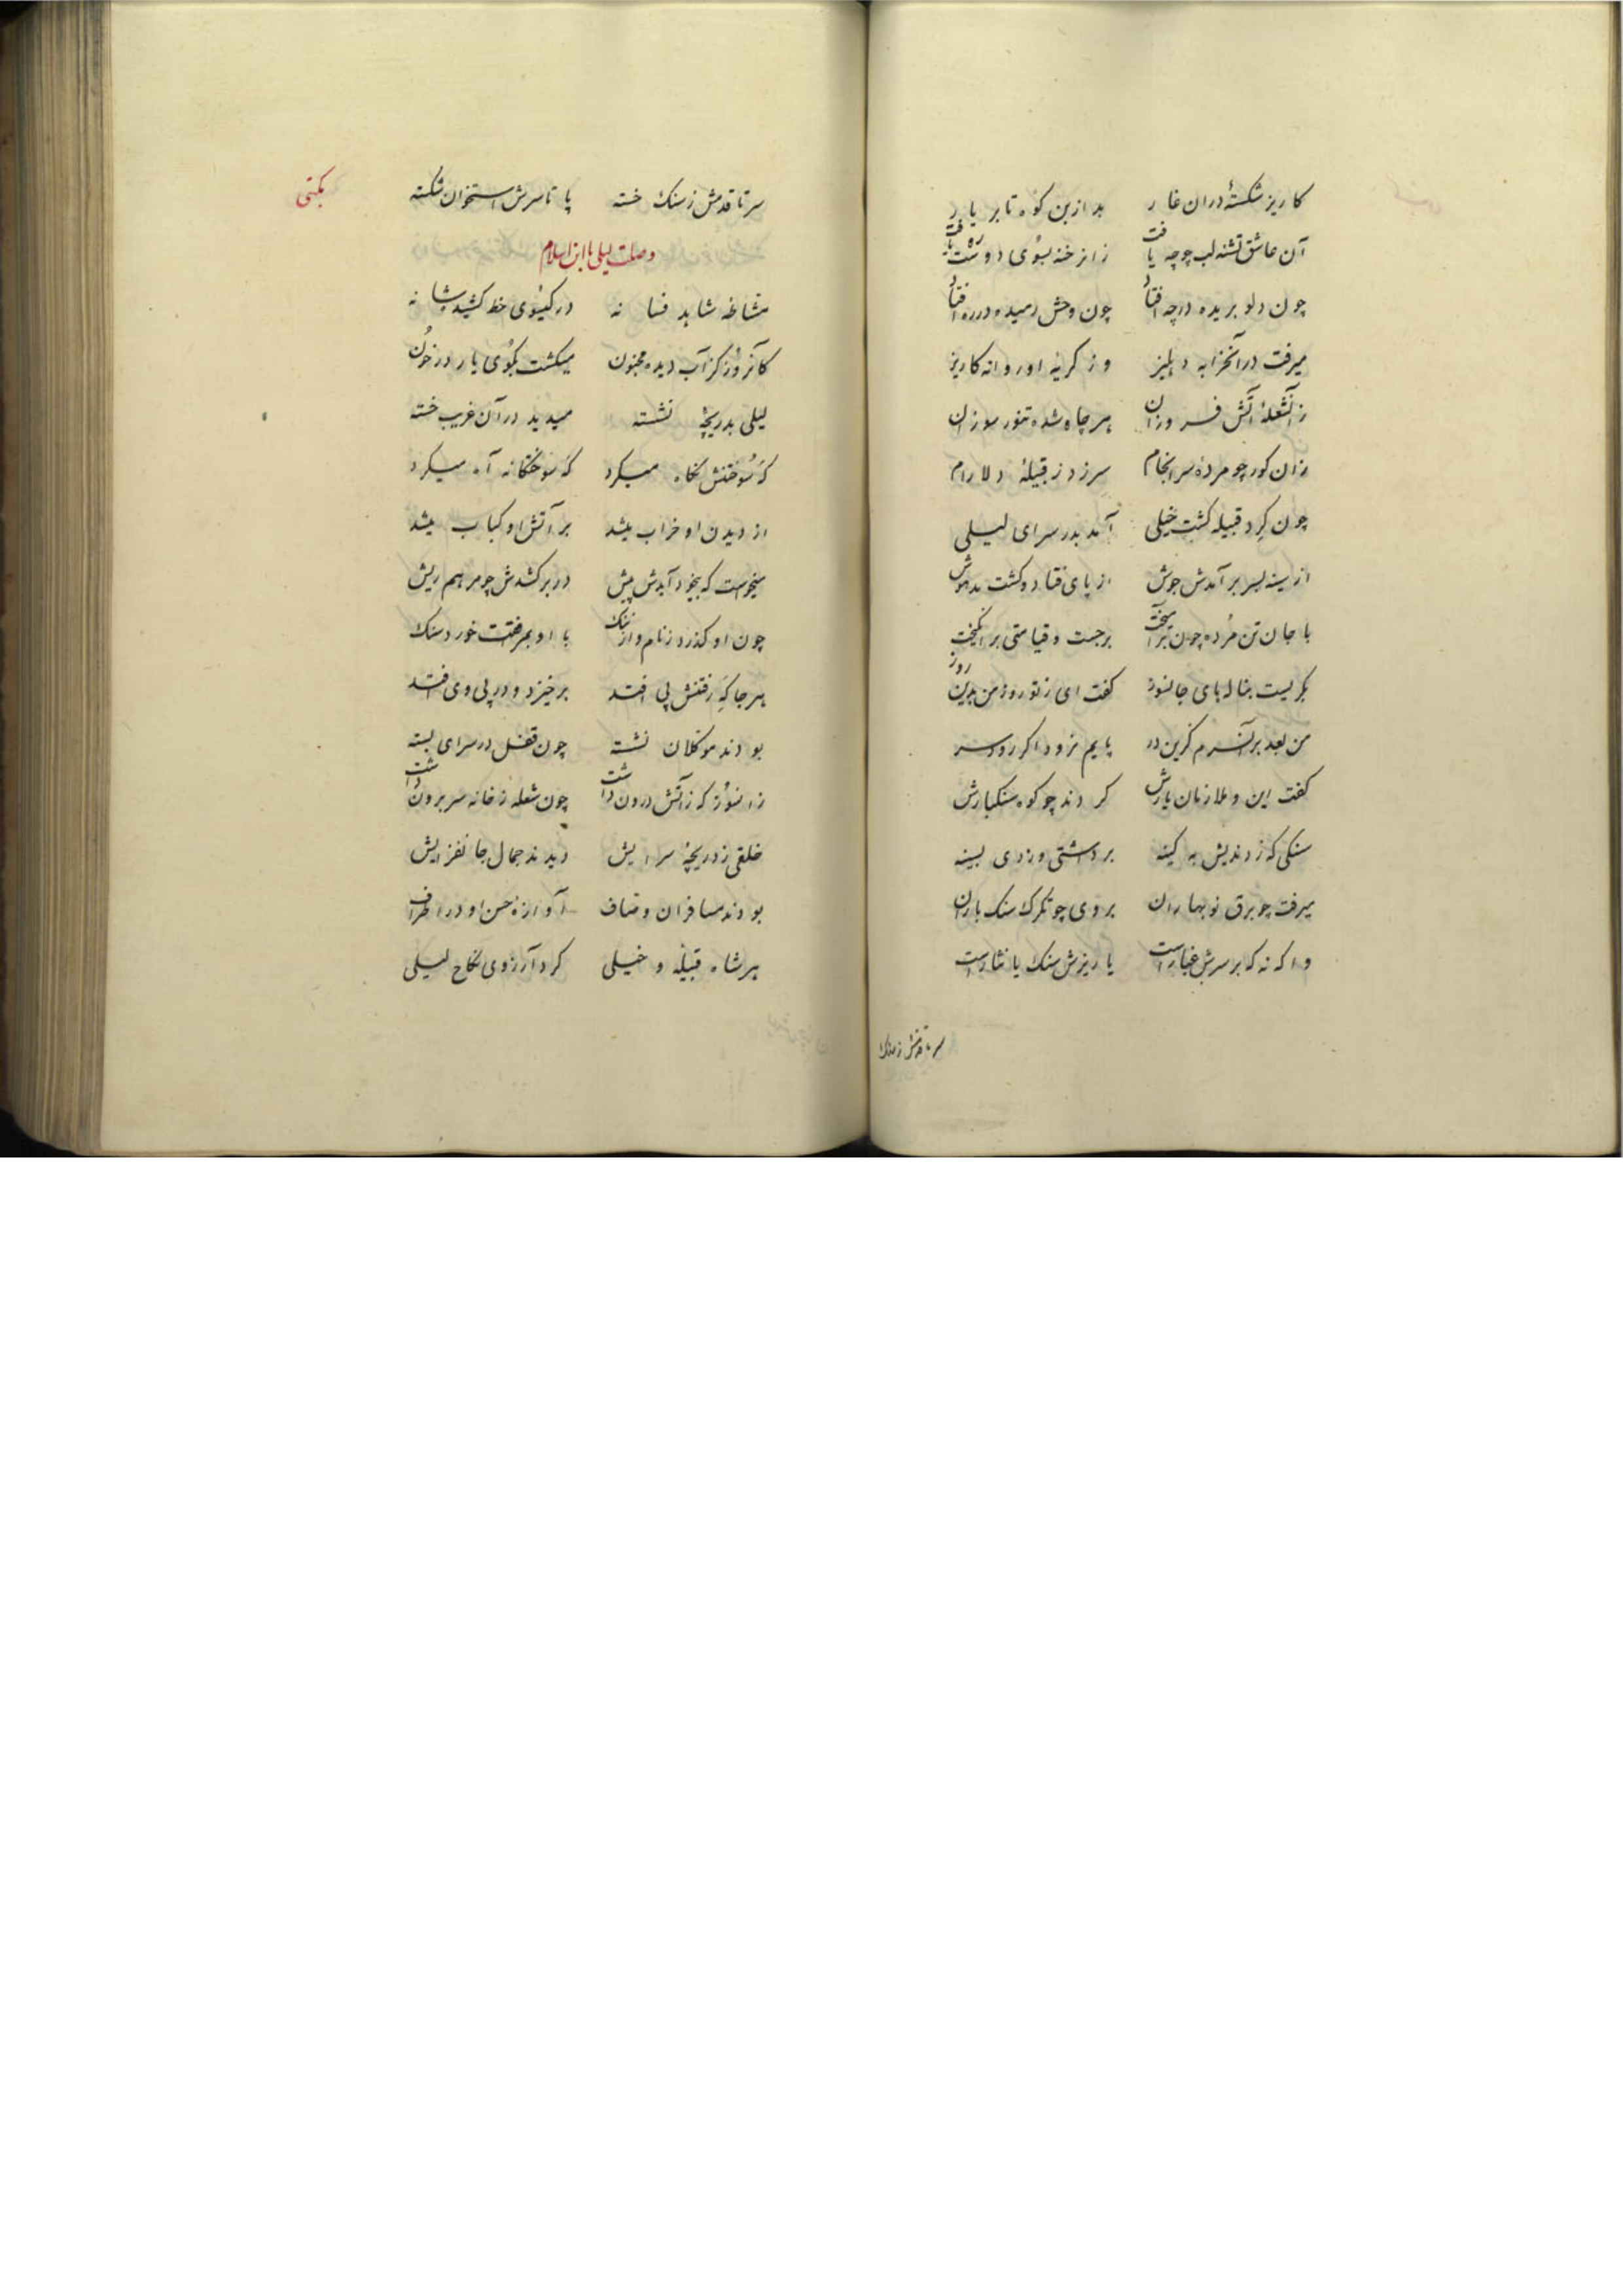 کاریز شکستهٔ دران غار بد ازین کوه تا بر یار
آن عاشق تشنه لب چو چه یافت زانرخنه بسوی دوست ره یافت
چون دلو بریده در چه افتاد چون وحش رمیده در ره افتاد
میرفت در آنخرابه دهلیز وز گریهٔ او روانه کاریز
زانشعلهٔ آتش فروزان هر چاه شده تنور سوزان
زان کور چو مردهٔ سرانجام سرزد ز قبیلهٔ دلارام
چون گرد قبیله گشت خیلی آمد بدر سرای لیلی
از سینه بسر برآمدش جوش از پای فتاد و گشت مدهوش
با جان تن مرده چون برآمیخت برجست و قیامتی برانگیخت
بگریست بناله‌های جانسوز گفت ای ز تو روز من بدین روز
من بعد برآنسرم کزین در پایم نرود اگر رود سر
گفت این و ملازمان یارش کردند چو کوه سنگبارش
سنگی که زدندیش به کینه برداشتی و زدی بسینه
میرفت چو برق نوبهاران بر وی چو تگرگ سنگ باران
واگه نه که بر سرش غبارست یا ریزش سنگ یا نثارست
سر تا قدمش ز سنک
سر تا قدمش ز سنک خسته پا تا سرش استخوان شکسته
وصلت لیلی با ابن اسلام
مشاطهٔ شاهد فسانه در گیسوی خط کشید شانه
کآنروز کز آب دیده مجنون میگشت بکوی یار در خون
لیلی بدریچهٔ نشسته میدید در آن غریب خسته
که سوختنش نگاه میکرد که سوختگانه آه میکرد
از دیدن او خراب میشد بر آتش او کباب میشد
میخواست که بیخود آیدش پیش در بر کشدش چو مرهم ریش
چون او گذرد ز نام و از ننگ با او بمرافقت خورد سنگ
هر جا که ز رفتنش پی افتد برخیزد و در پی وی افتد
بودند موکلان نشسته چون قفل در سرای بسته
زانسوز که زآتش درون داشت چون شعله ز خانه سر برون داشت
خلقی ز دریچهٔ سرایش دیدند جمال جانفزایش
بودند مسافران وصاف آوازهٔ حسن او در اطراف
هر شاه قبیله و خیلی کرد آرزوی نکاح لیلی